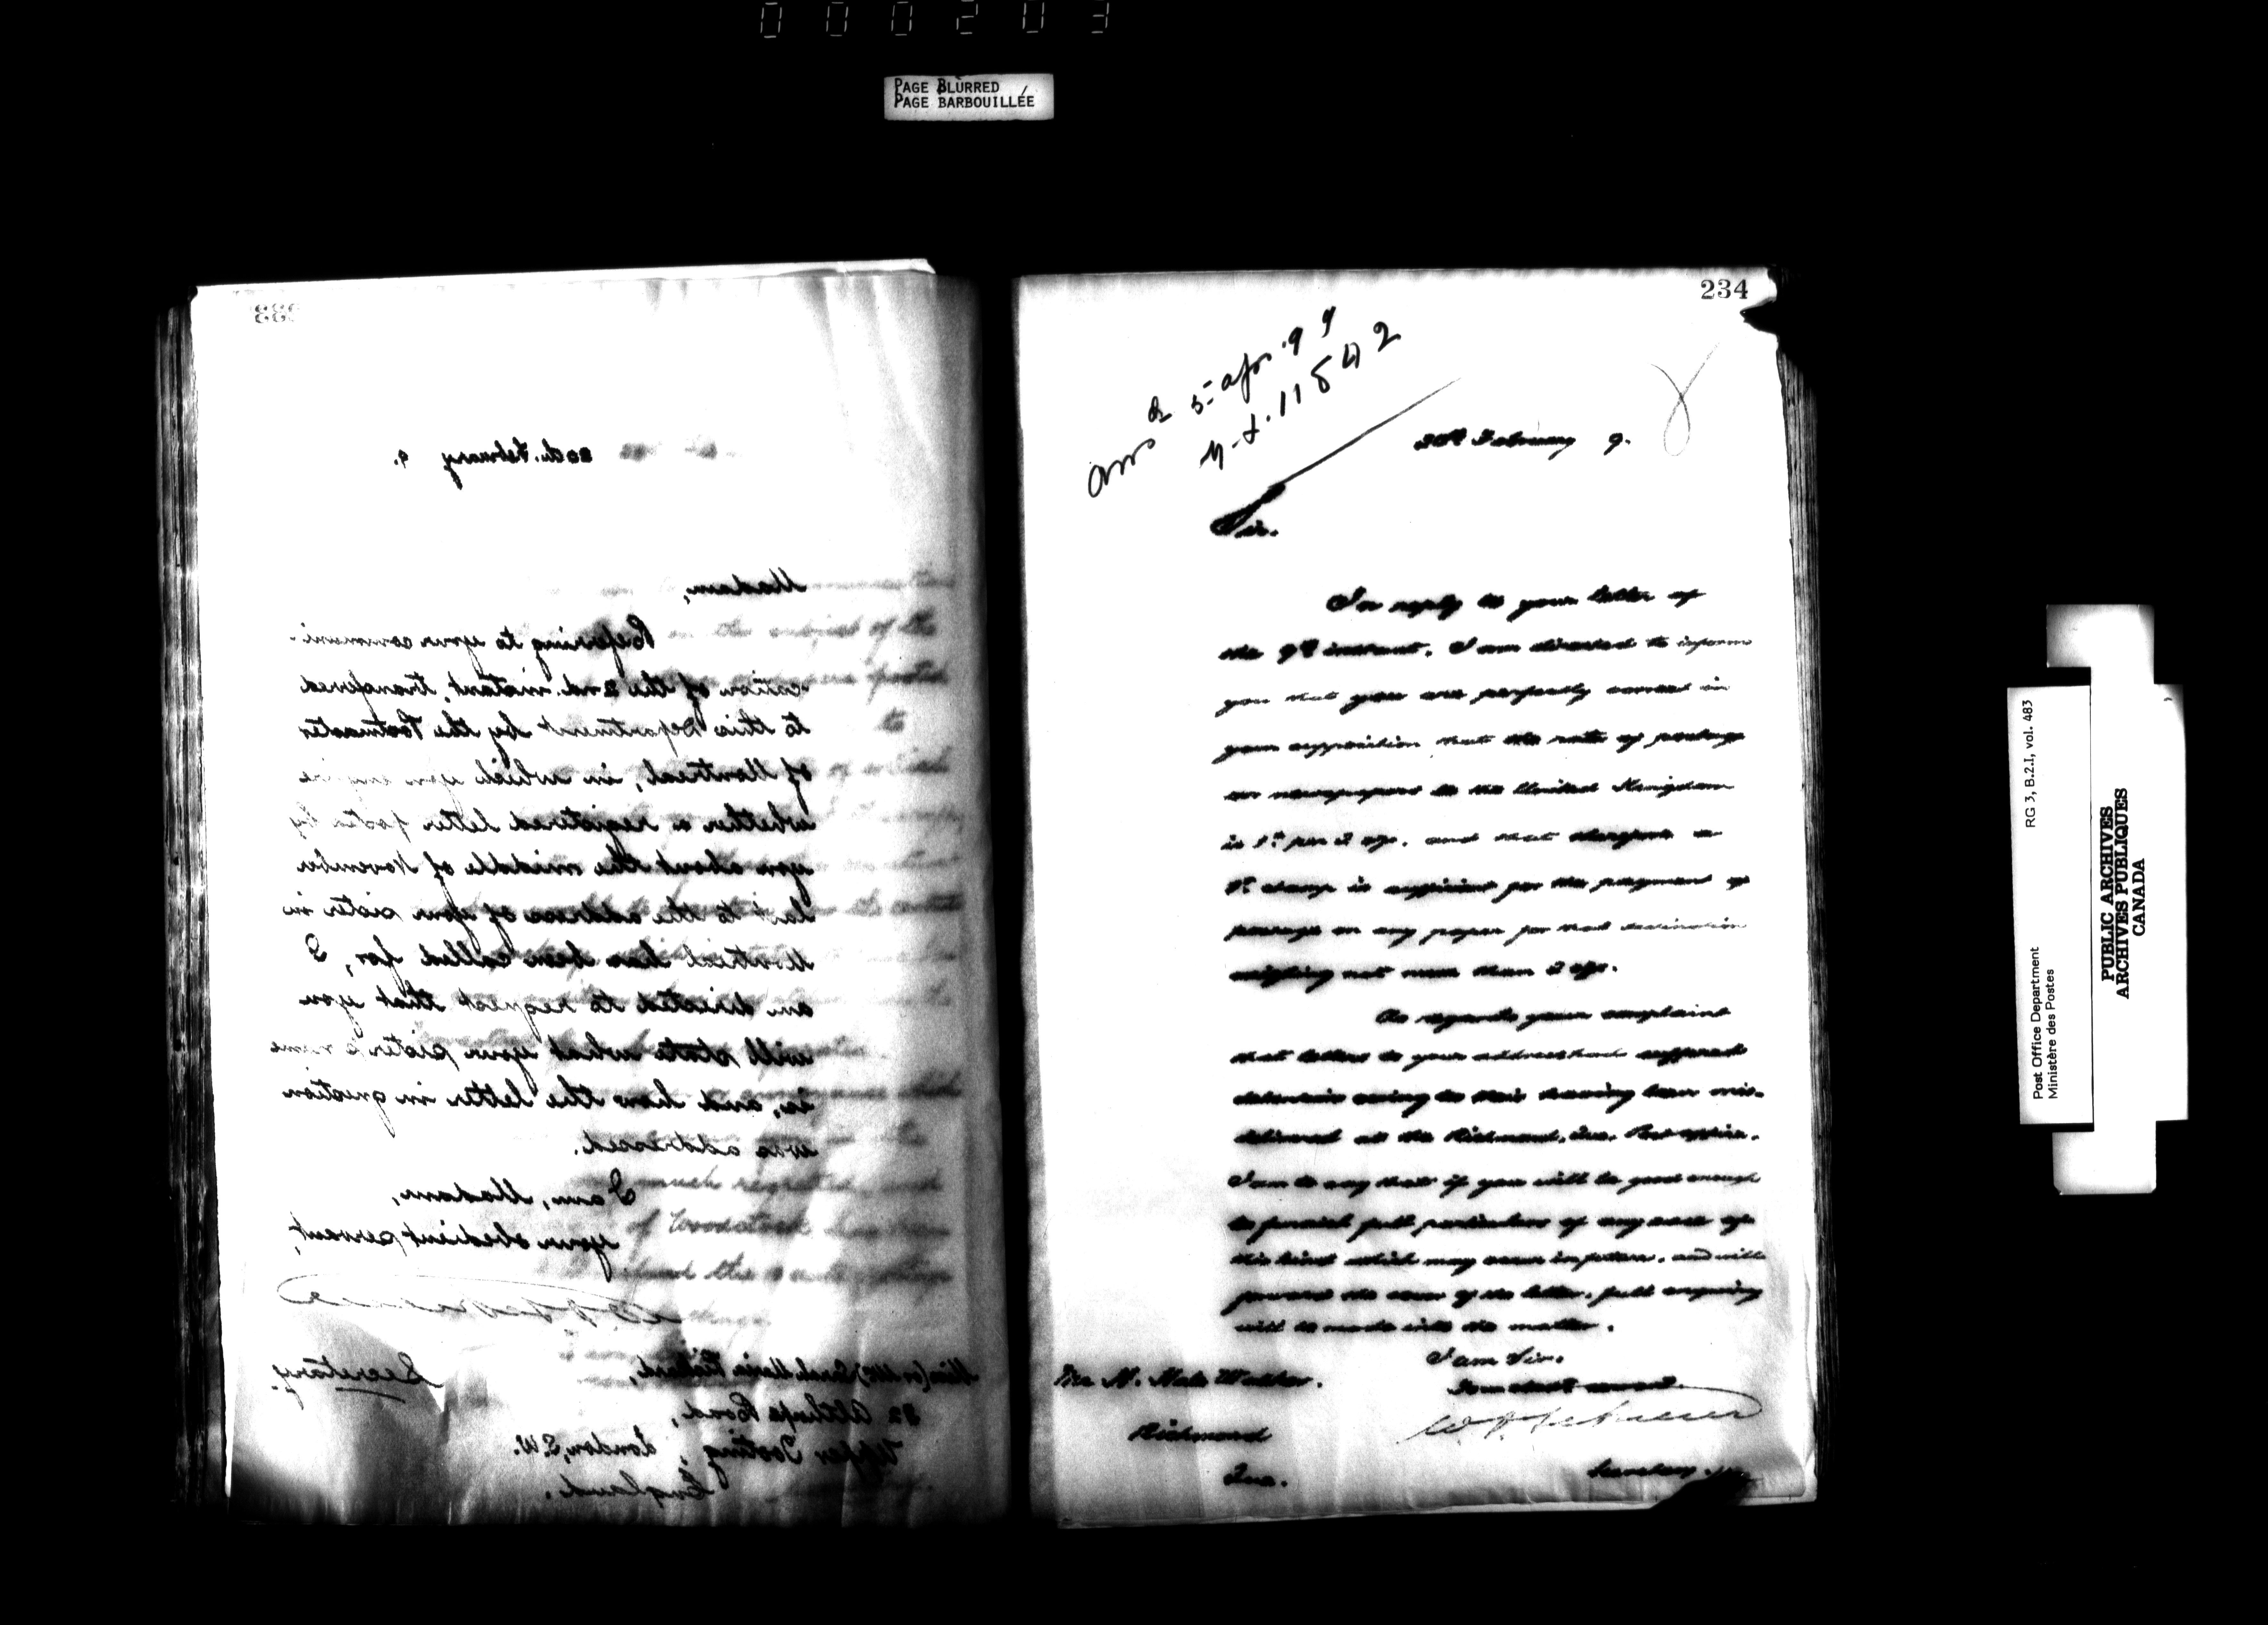 000203
PAGE BLURRED
PAGE BARBOUILLÉE
333
20th. February 9.
Madam,
Refering to your communi-
cation of the 2nd. instant, transfered
to this Department by the Postmaster
of Montreal, in which you enquire
whether a registered letter posted by
you about the middle of November
last to the address of your sister in
Montreal has been called for, I
am directed to request that you
will state what your sister's name
is, and how the letter in question
was addressed.
I am, Madam,
your obedient servant,
Secretary.
Miss (or Mrs) Sarah Maria
Althorp Road,
Upper Tooting, London, S.W.
England.
234
ans 5 - apr. 99
11542
20th February 9.
Sir.
In reply to your letter of
the 9th instant, I am directed to inform
you that you are perfectly correct in
your supposition that the rate of postage
on newspapers to the United Kingdom
is 1c. per 2 ozs. and that therefore a
1c. stamp is sufficient for the payment of
postage on any paper for that destination
weighing not more than 2 ozs.
As regards your complaint
that letters to your address had suffered
detention owing to their having been mis-
delivered at the Richmond, Que. Post office,
I am to say that if you will be good enough
to furnish full particulars of any case of
this kind which may occur in future, and will
forward the cover of the letter, full enquiry
will be made into the matter.
I am Sir.
Your obedt servant.
Secretary.
Mr. H. Hale Walker.
Richmond
Que.
Post Office Department
Ministère des Postes
RG 3, B.2.I, vol. 483
PUBLIC ARCHIVES
ARCHIVES PUBLIQUES
CANADA